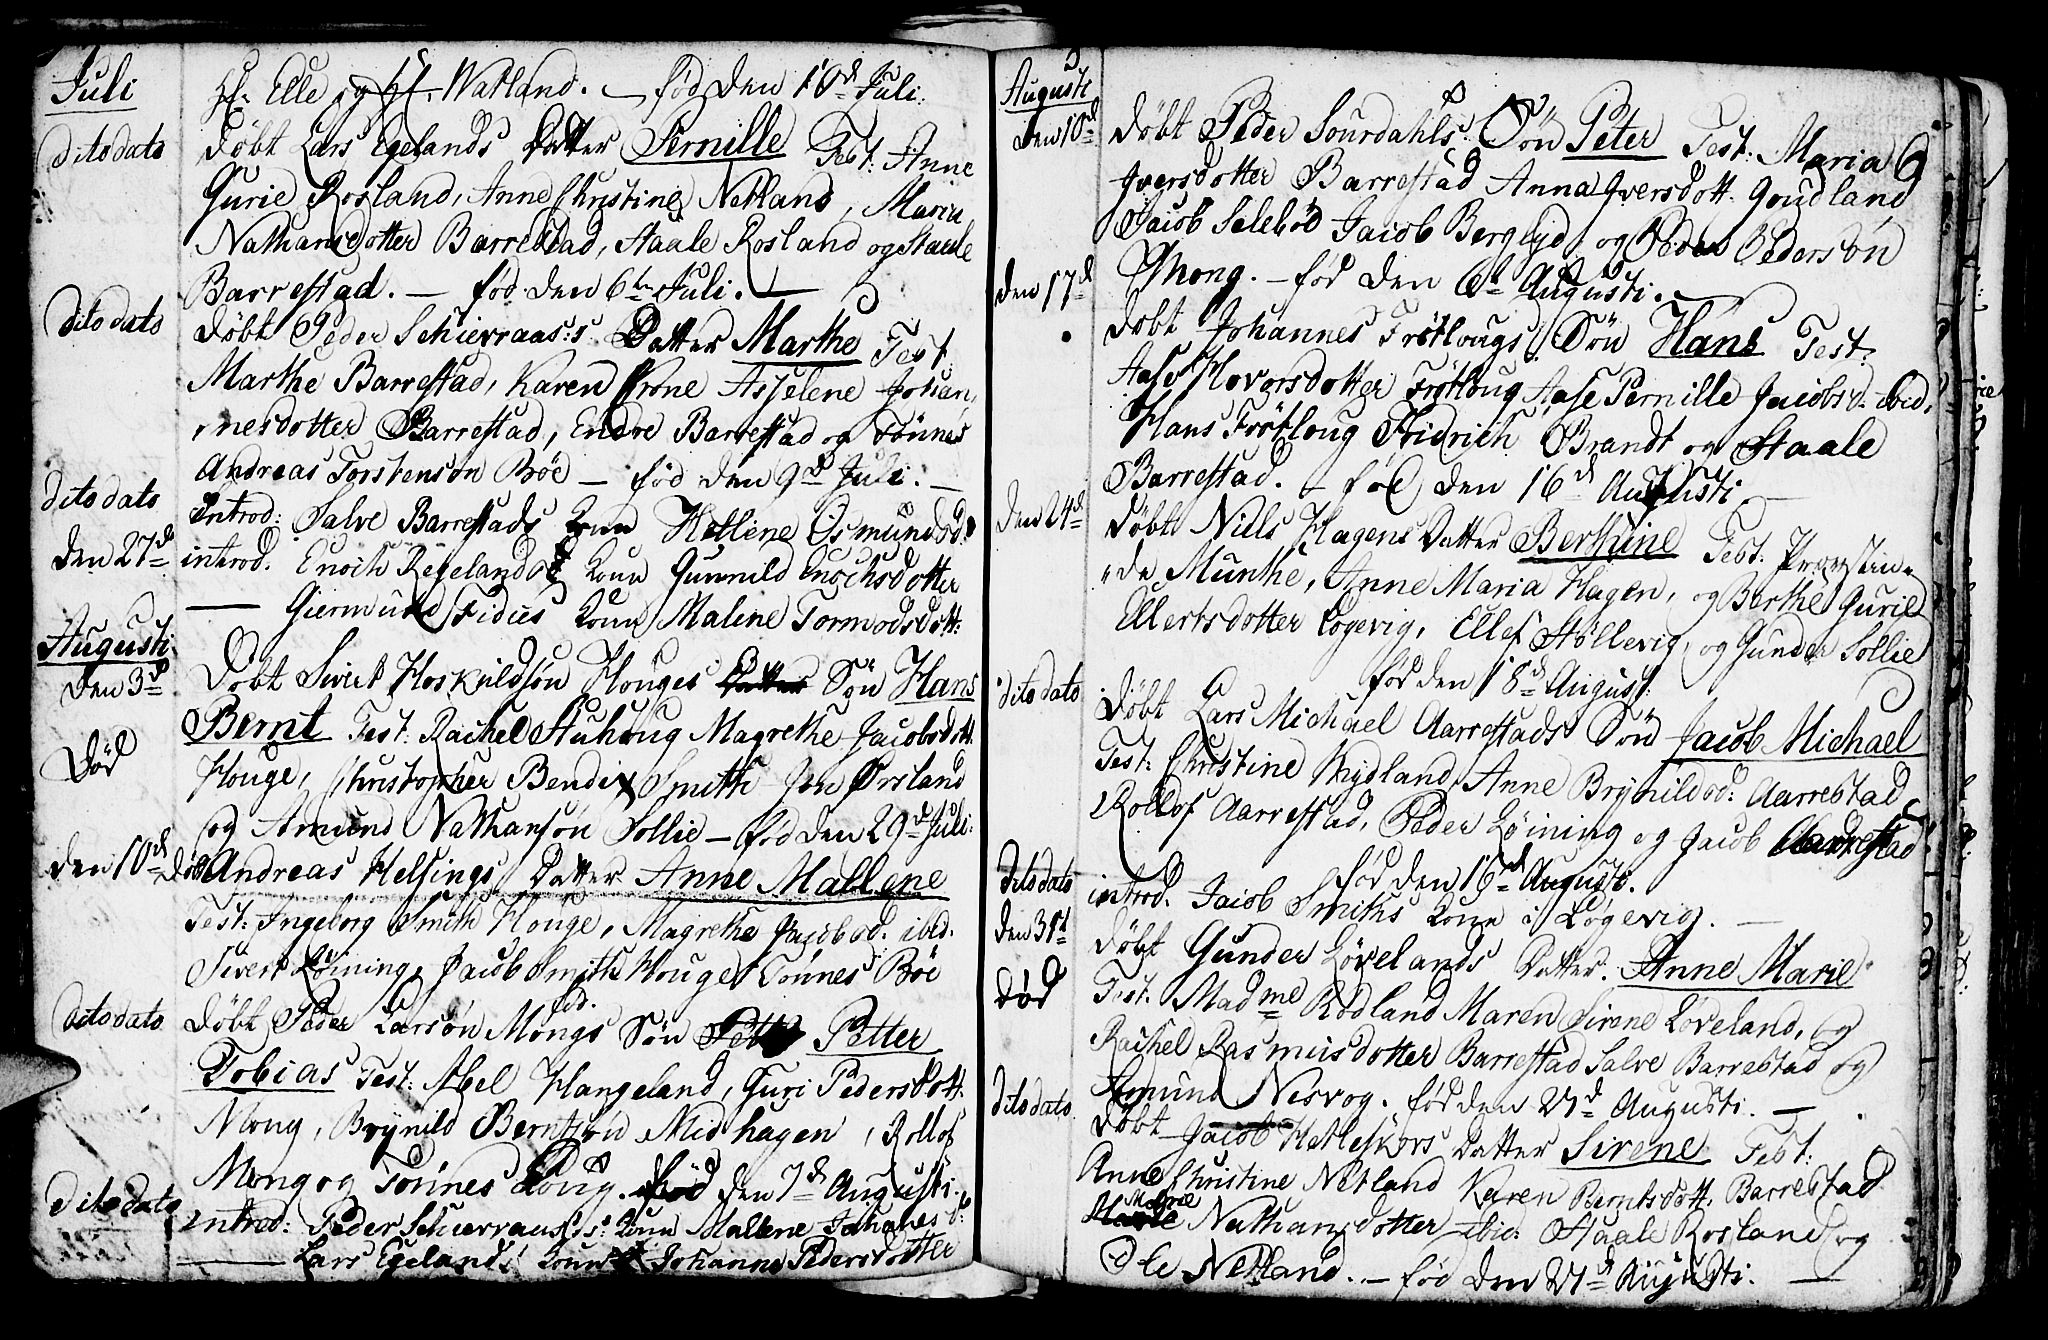 Juli
Hr. Elle og Watland. — fød den 10d Juli.
dito dato
døbt Lars Egelands Datter Pernille Test: Anne
Gurie Rosland, Anne Christine Netland, Maria
Nathansdotter Barrestad, Staale Rosland og Staale
Barrestad. — fød den 6te Juli. —
dito dato
døbt Peder Schierraas:s Datter Marthe Test
Marthe Barrestad, Karen Krone Asselene Johan,
nesdotter Barrestad, Endre Barrestad og Tönnes
Andreas Torstenson Böe — fød den 9d Juli. —
dito dato
introd: Salve Barrestads Kone Hellene Osmundsd:
den 27d
introd. Enoch Regelands Kone Gunnild Enochsdotter
— Giermund Fidies Kone Malene Tormodsdott:
Augusti
den 3d
Døbt Sivert Hoskuldsøn Houges Datter Søn Hans
Bernt Test: Rachel Stuhoug Magrethe Jacobsdtt.
Død
Houge, Christopher Bendix Smith Jon Ørsland
og Amund Nathansøn Sollie — fød den 29d Juli.
den 10d
Døbt Andreas Helsings Datter Anne Mallene
Test: Ingeborg Smith Houge, Magrethe Jacobsd. ibid.
Sivert Löining, Jacob Smith Houge Tönnes Böe
dito dato
døbt Peder Larsøn Mongs Søn Pette Petter
Tobias Test: Abel Hangeland, Guri Pedersdott.
Mong, Brynild Berntsøn Midhagen, Rollof
Mong og Tönnes Loug. fød den 7d Augusti.
dito dato
introd: Peder Schierraas:s: Kone Mallene Johanesd:
— Lars Egelands Kone Johanne Pedersdotter
Augusti
den 10d
døbt Peder Sourdahls: Søn Peter Test: Maria
Iversdotter Barrestad Anna Iversdott. Goudland
Jacob Selebød Jacob Berglyd og Peder Pedersøn
Mong. — fød den 6d Augusti. —
den 17d
døbt Johannes Frøtlougs Søn Hans Test:
Aase Hovorsdotter Frøtloug Aase Pernille Jacobsd. ibid.
Hans Frøtloug Fridrich Brandt og Staale
Barrestad. — fød den 16d Augusti —
den 24d
døbt Niels Hagens Datter Berthine Test:
Munthe, Anne Maria Hagen, og Berthe Gurie
Ellertsdotter Løgevig, Ellef Støllevig, og Gunder Sollie
fød den 18d August:
dito dato
døbt Lars Michael Aarrestads Søn Jacob Michael
Test: Christine Mydland, Anne Brynildsd: Aarrestad
Rollof Aarrestad, Peder Löining og Jacob Aarrestad
fød den 16d Augusti.
dito dato
introd. Jacob Smiths Kone i Løgevig. —
den 31d
døbt Gunder Løvelands Datter. Anne Marie
død
Test: Madme Rodland Maren Sirene Løveland, og
Rachel Rasmusdotter Barrestad Salve Barrestad og
Amund Nesvog. fød den 27d Augusti. —
dito dato.
døbt Jacob Hetleskors Datter Sirene Test:
Anne Christine Netland Karen Berntsdott. Barrestad
Malene
Nathansdotter ibid: Staale Rosland og
Ole Netland. — fød den 27d Augusti. —